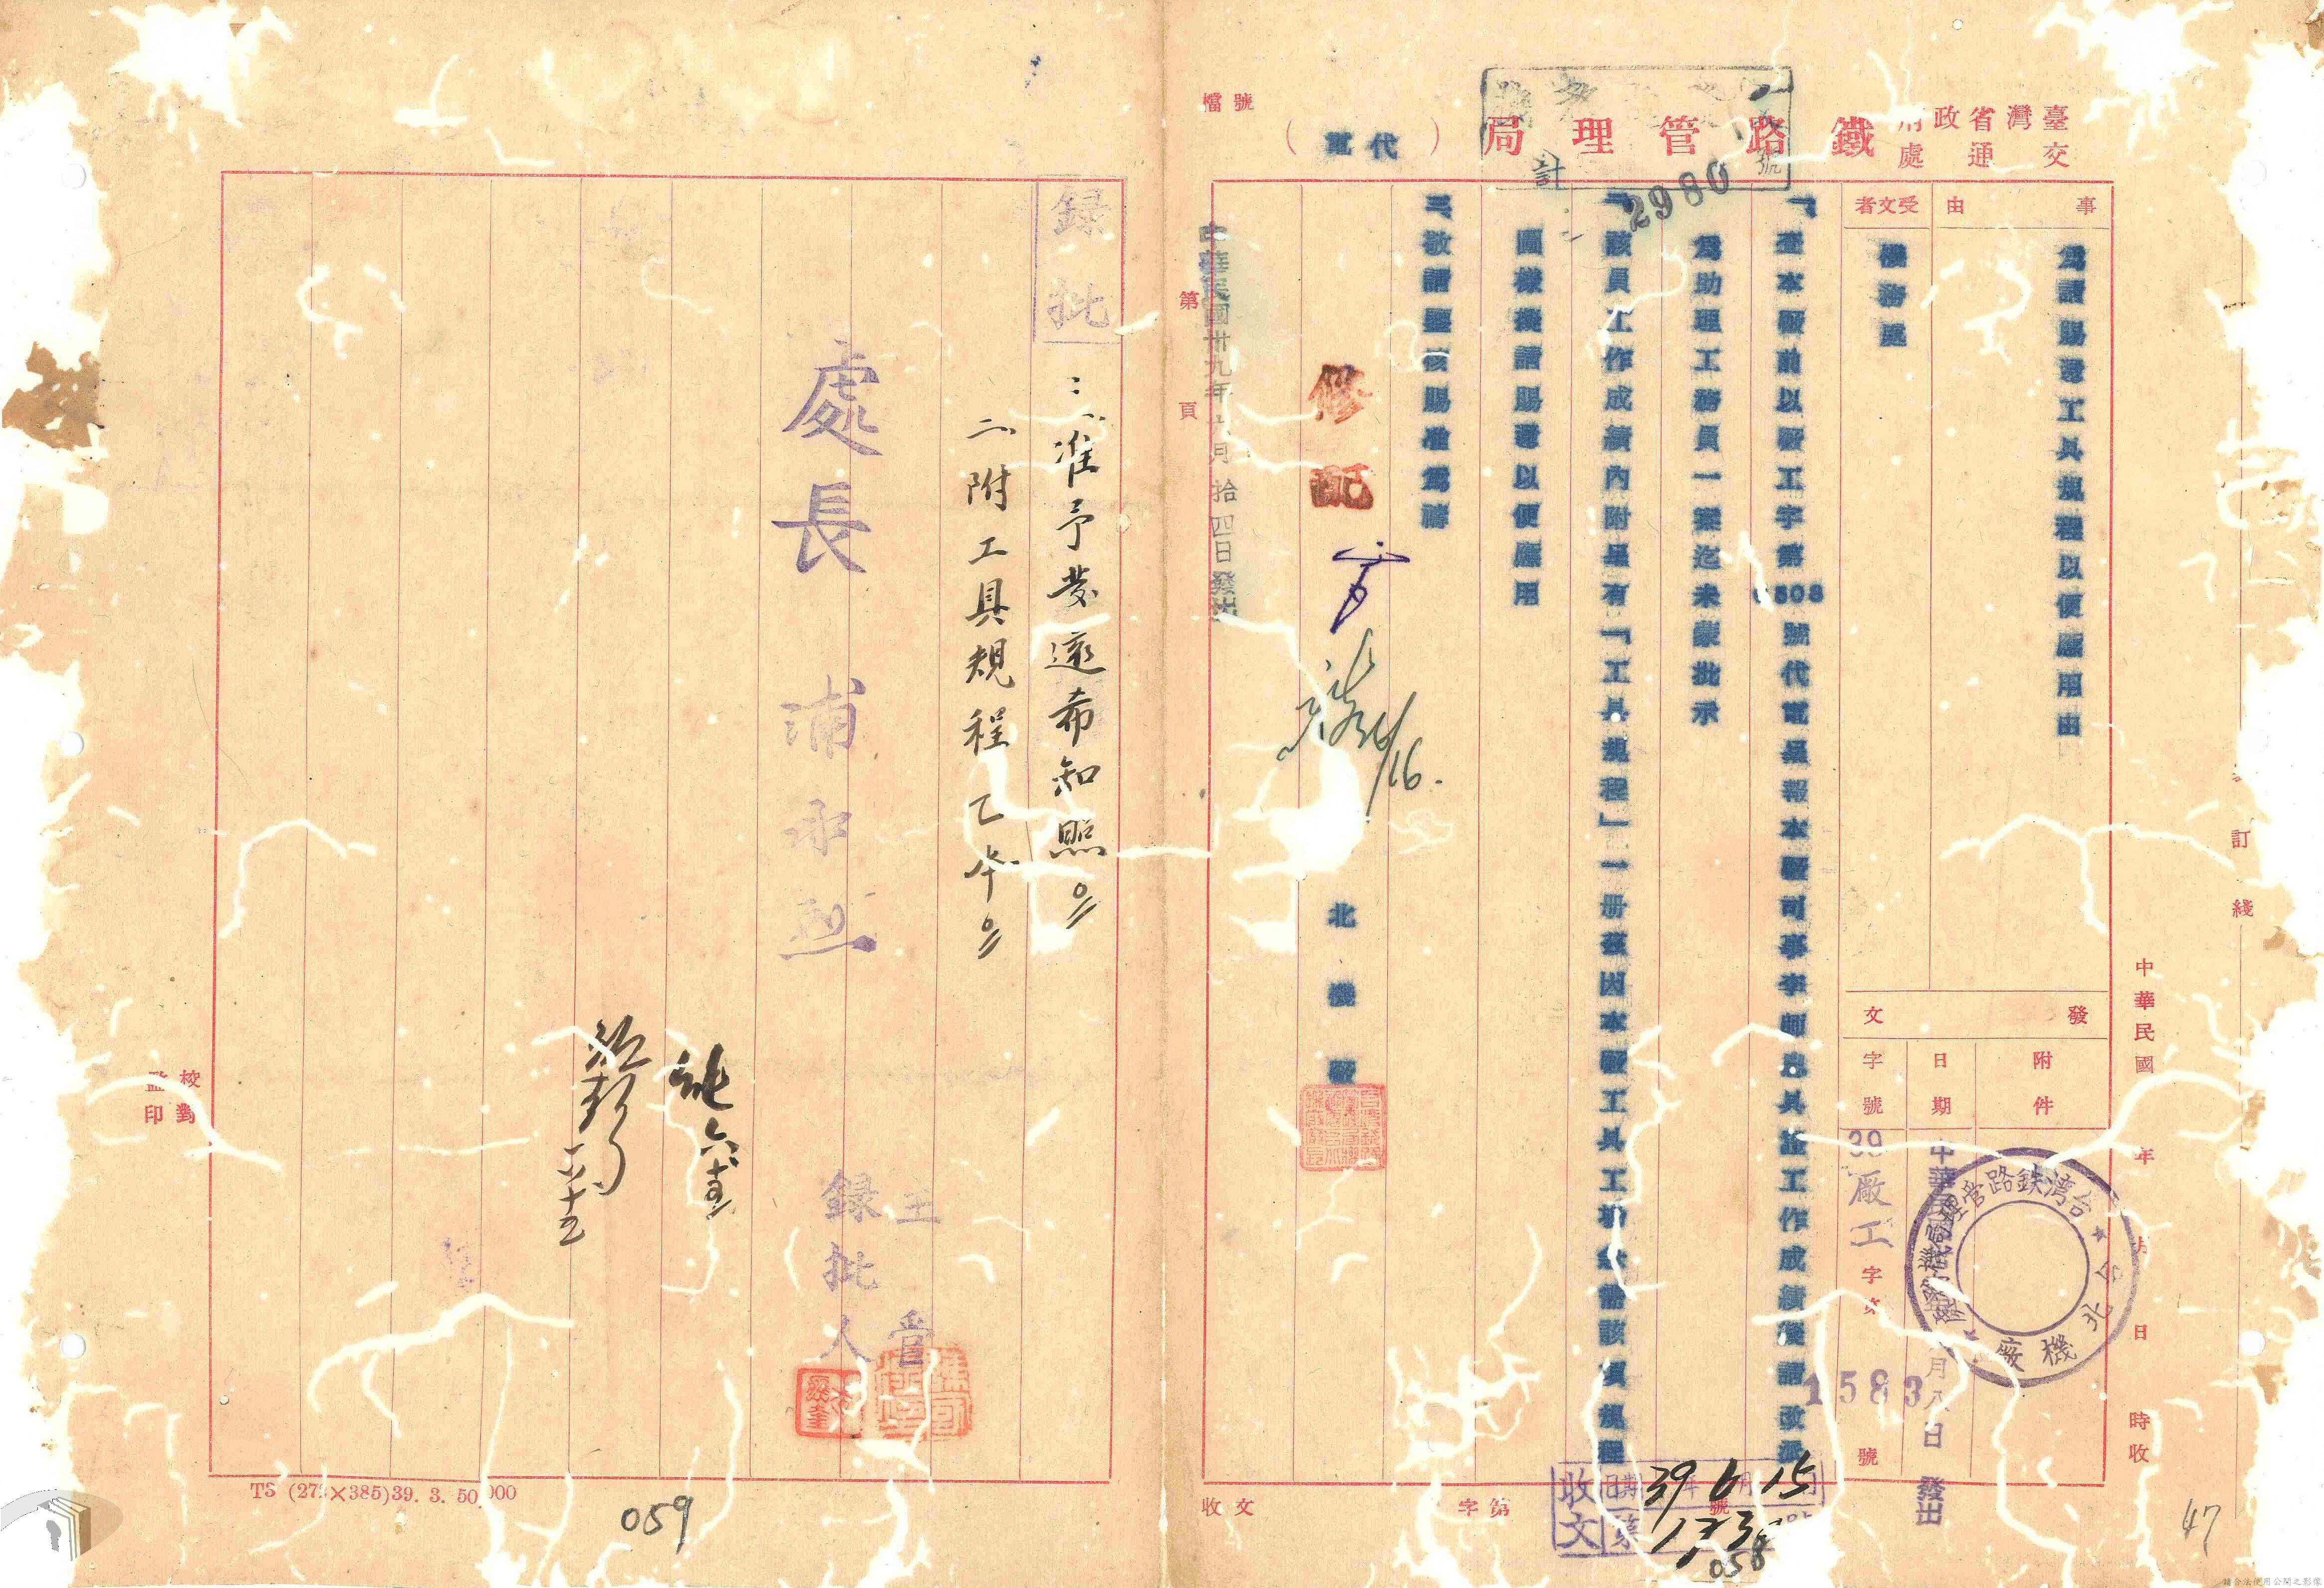 臺灣省政府
交通處
鐵路管理局
（代電）
檔號
2980
事由
為請賜還工具規程以便應用由
受文者
機務處
發文
附件
日期
字號
39廠工字第
1583
號
月八日發出
台湾鉄路管理局機務處
台北機廠
中華民國 年 月 日 時收
訂
綫
一、查本廠前以廠工字第
號代電呈報本廠司事李師忠具該工作成績懇請改派
為助理工務員一案迄未蒙批示
二、該員工作成績內附呈有「工具規程」一册茲因本廠工具工場急需該項規程
圖樣擬請賜還以便應用
三、敬請鑒核賜准為禱
修配
6/16.
北機廠
中華民國卅九年六月拾四日發出
第頁
收文
字第
號
收文
日期 39年6月15日
第
058
47
錄批
一、准予發還希知照。
二、附工具規程乙本。
處長
浦
主管
錄批人
六十五
校對
監印
TS (27 ×385)39. 3. 50,000
059